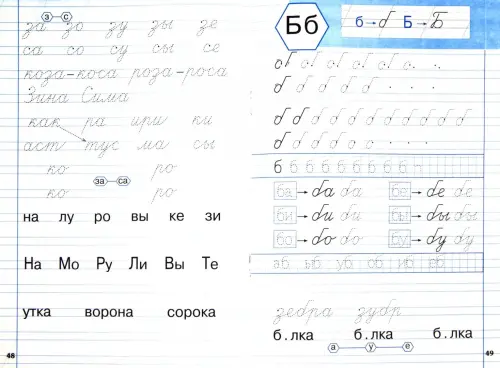 з с
за зо зу зы зе
са со су сы се
коза-коса роза-роса
Зина Сима
как ра ири ки
аст тус ма сы
ко ро
за са
ко ро
на лу ро вы ке зи
На Мо Ру Ли Вы Те
утка ворона сорока
48
Бб
б → б Б → Б
б б б б б б
б б б б б
б б б б б б б б б б
б б б б
б б б б б б б б б
ба → ба ба бе → бе бе
би → би би бы → бы бы
бо → бо бо бу → бу бу
аб ыб уб об иб еб
зебра зубр
б.лка б.лка б.лка
а у е
49